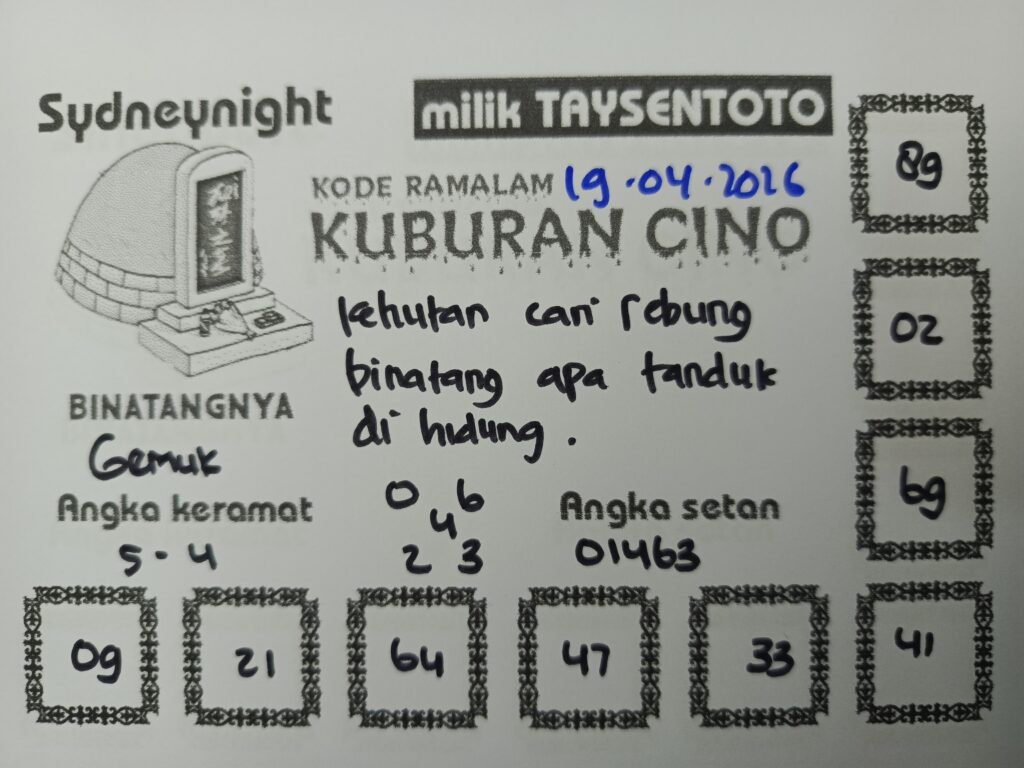 Sydneynight
milik TAYSENTOTO
KODE RAMALAM 19.04.2026
KUBURAN CINO
kehutan cari rebung
binatang apa tanduk
di hidung.
BINATANGNYA
Gemuk
Angka keramat
5-4
0 6
4
2 3
Angka setan
01463
89
02
69
41
09
21
64
47
33